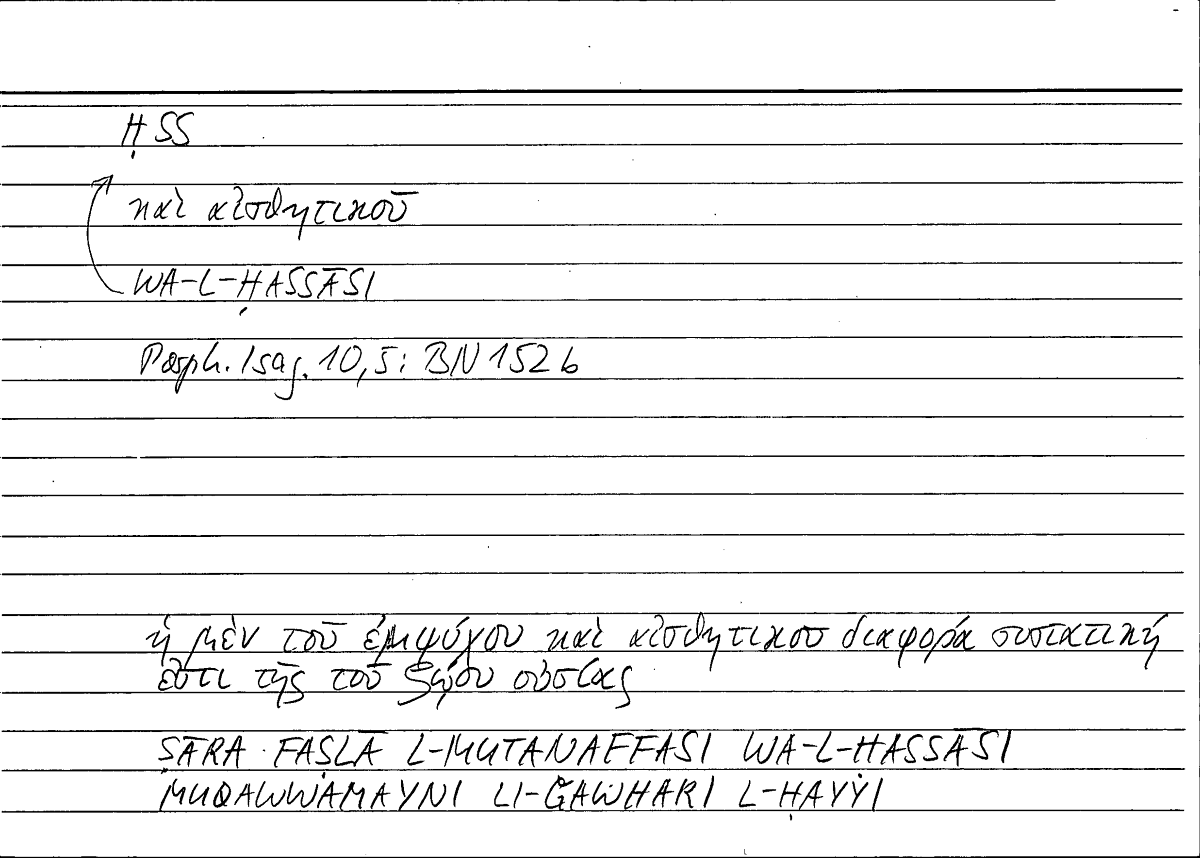 ḤSS
καὶ αἰσθητικοῦ
WA-L-ḤASSĀSI
Porph. Isag. 10,5: BN 152b
ἡ μὲν τοῦ ἐμψύχου καὶ αἰσθητικου διαφορά συστατική
ἐστι τῆς τοῦ ζῴου οὐσίας
ṢĀRA FAṢLĀ L-MUTANAFFASI WA-L-HASSĀSI
MUQAWWAMAYNI LI-ǦAWHARI L-ḤAYYI